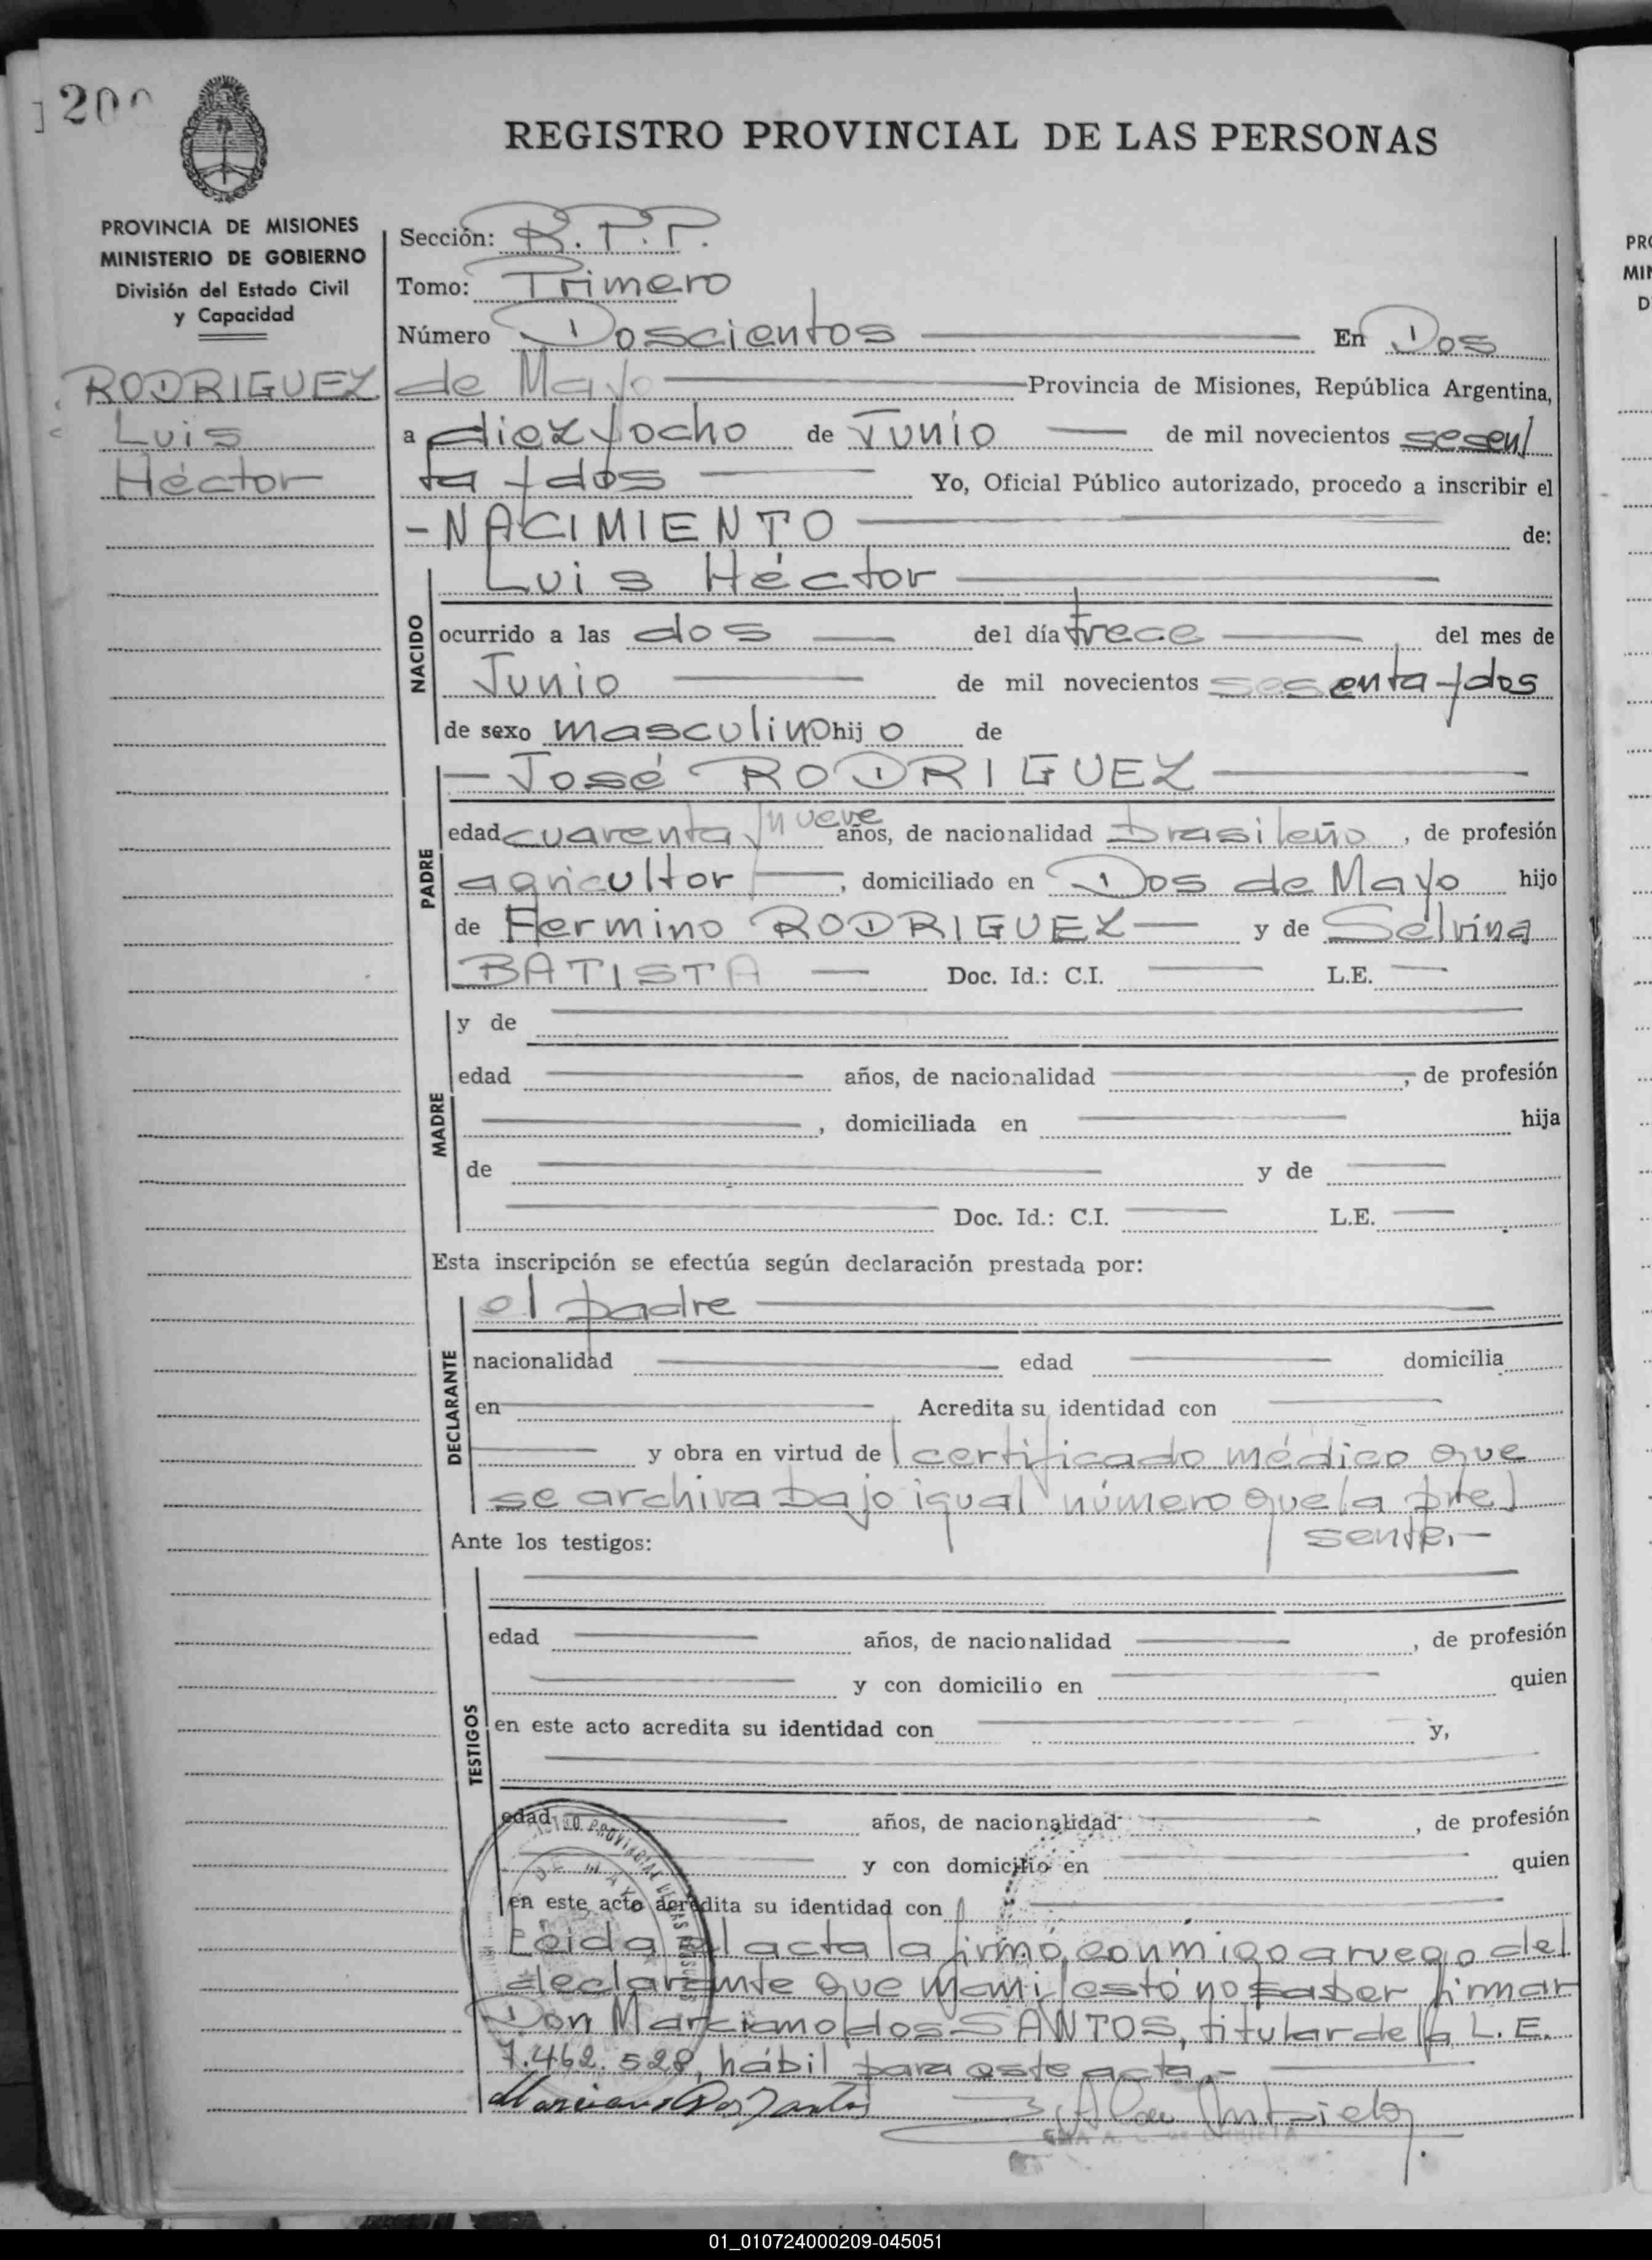 200
REGISTRO PROVINCIAL DE LAS PERSONAS
PROVINCIA DE MISIONES
MINISTERIO DE GOBIERNO
División del Estado Civil
y Capacidad
RODRIGUEZ
Luis
Héctor
Sección: R.P.P.
Tomo: Primero
Número Doscientos En Dos
de Mayo Provincia de Misiones, República Argentina,
a diez y ocho de Junio de mil novecientos sesen
ta y dos Yo, Oficial Público autorizado, procedo a inscribir el
- NACIMIENTO de:
NACIDO
Luis Héctor
ocurrido a las dos del día trece del mes de
Junio de mil novecientos sesenta y dos
de sexo masculino hij o de
PADRE
José RODRIGUEZ
edad cuarenta y nueve años, de nacionalidad brasileño, de profesión
agricultor, domiciliado en Dos de Mayo hijo
de Fermino RODRIGUEZ y de Selvina
BATISTA Doc. Id.: C.I. L.E.
MADRE
y de
edad años, de nacionalidad , de profesión
, domiciliada en hija
de y de
Doc. Id.: C.I. L.E.
Esta inscripción se efectúa según declaración prestada por:
DECLARANTE
el padre
nacionalidad edad domicilia
en Acredita su identidad con
y obra en virtud de certificado médico que
se archiva bajo igual número que la pre
sente.-
Ante los testigos:
TESTIGOS
edad años, de nacionalidad , de profesión
y con domicilio en quien
en este acto acredita su identidad con y,
edad años, de nacionalidad , de profesión
y con domicilio en quien
en este acto acredita su identidad con
Leída el acta la firmó conmigo a ruego del
declarante que manifestó no saber firmar
Don Marciano dos SANTOS, titular de la L. E.
7.462.528, hábil para este acta.-
Marciano Dos Santos
PRO
MIN
D
01_010724000209-045051